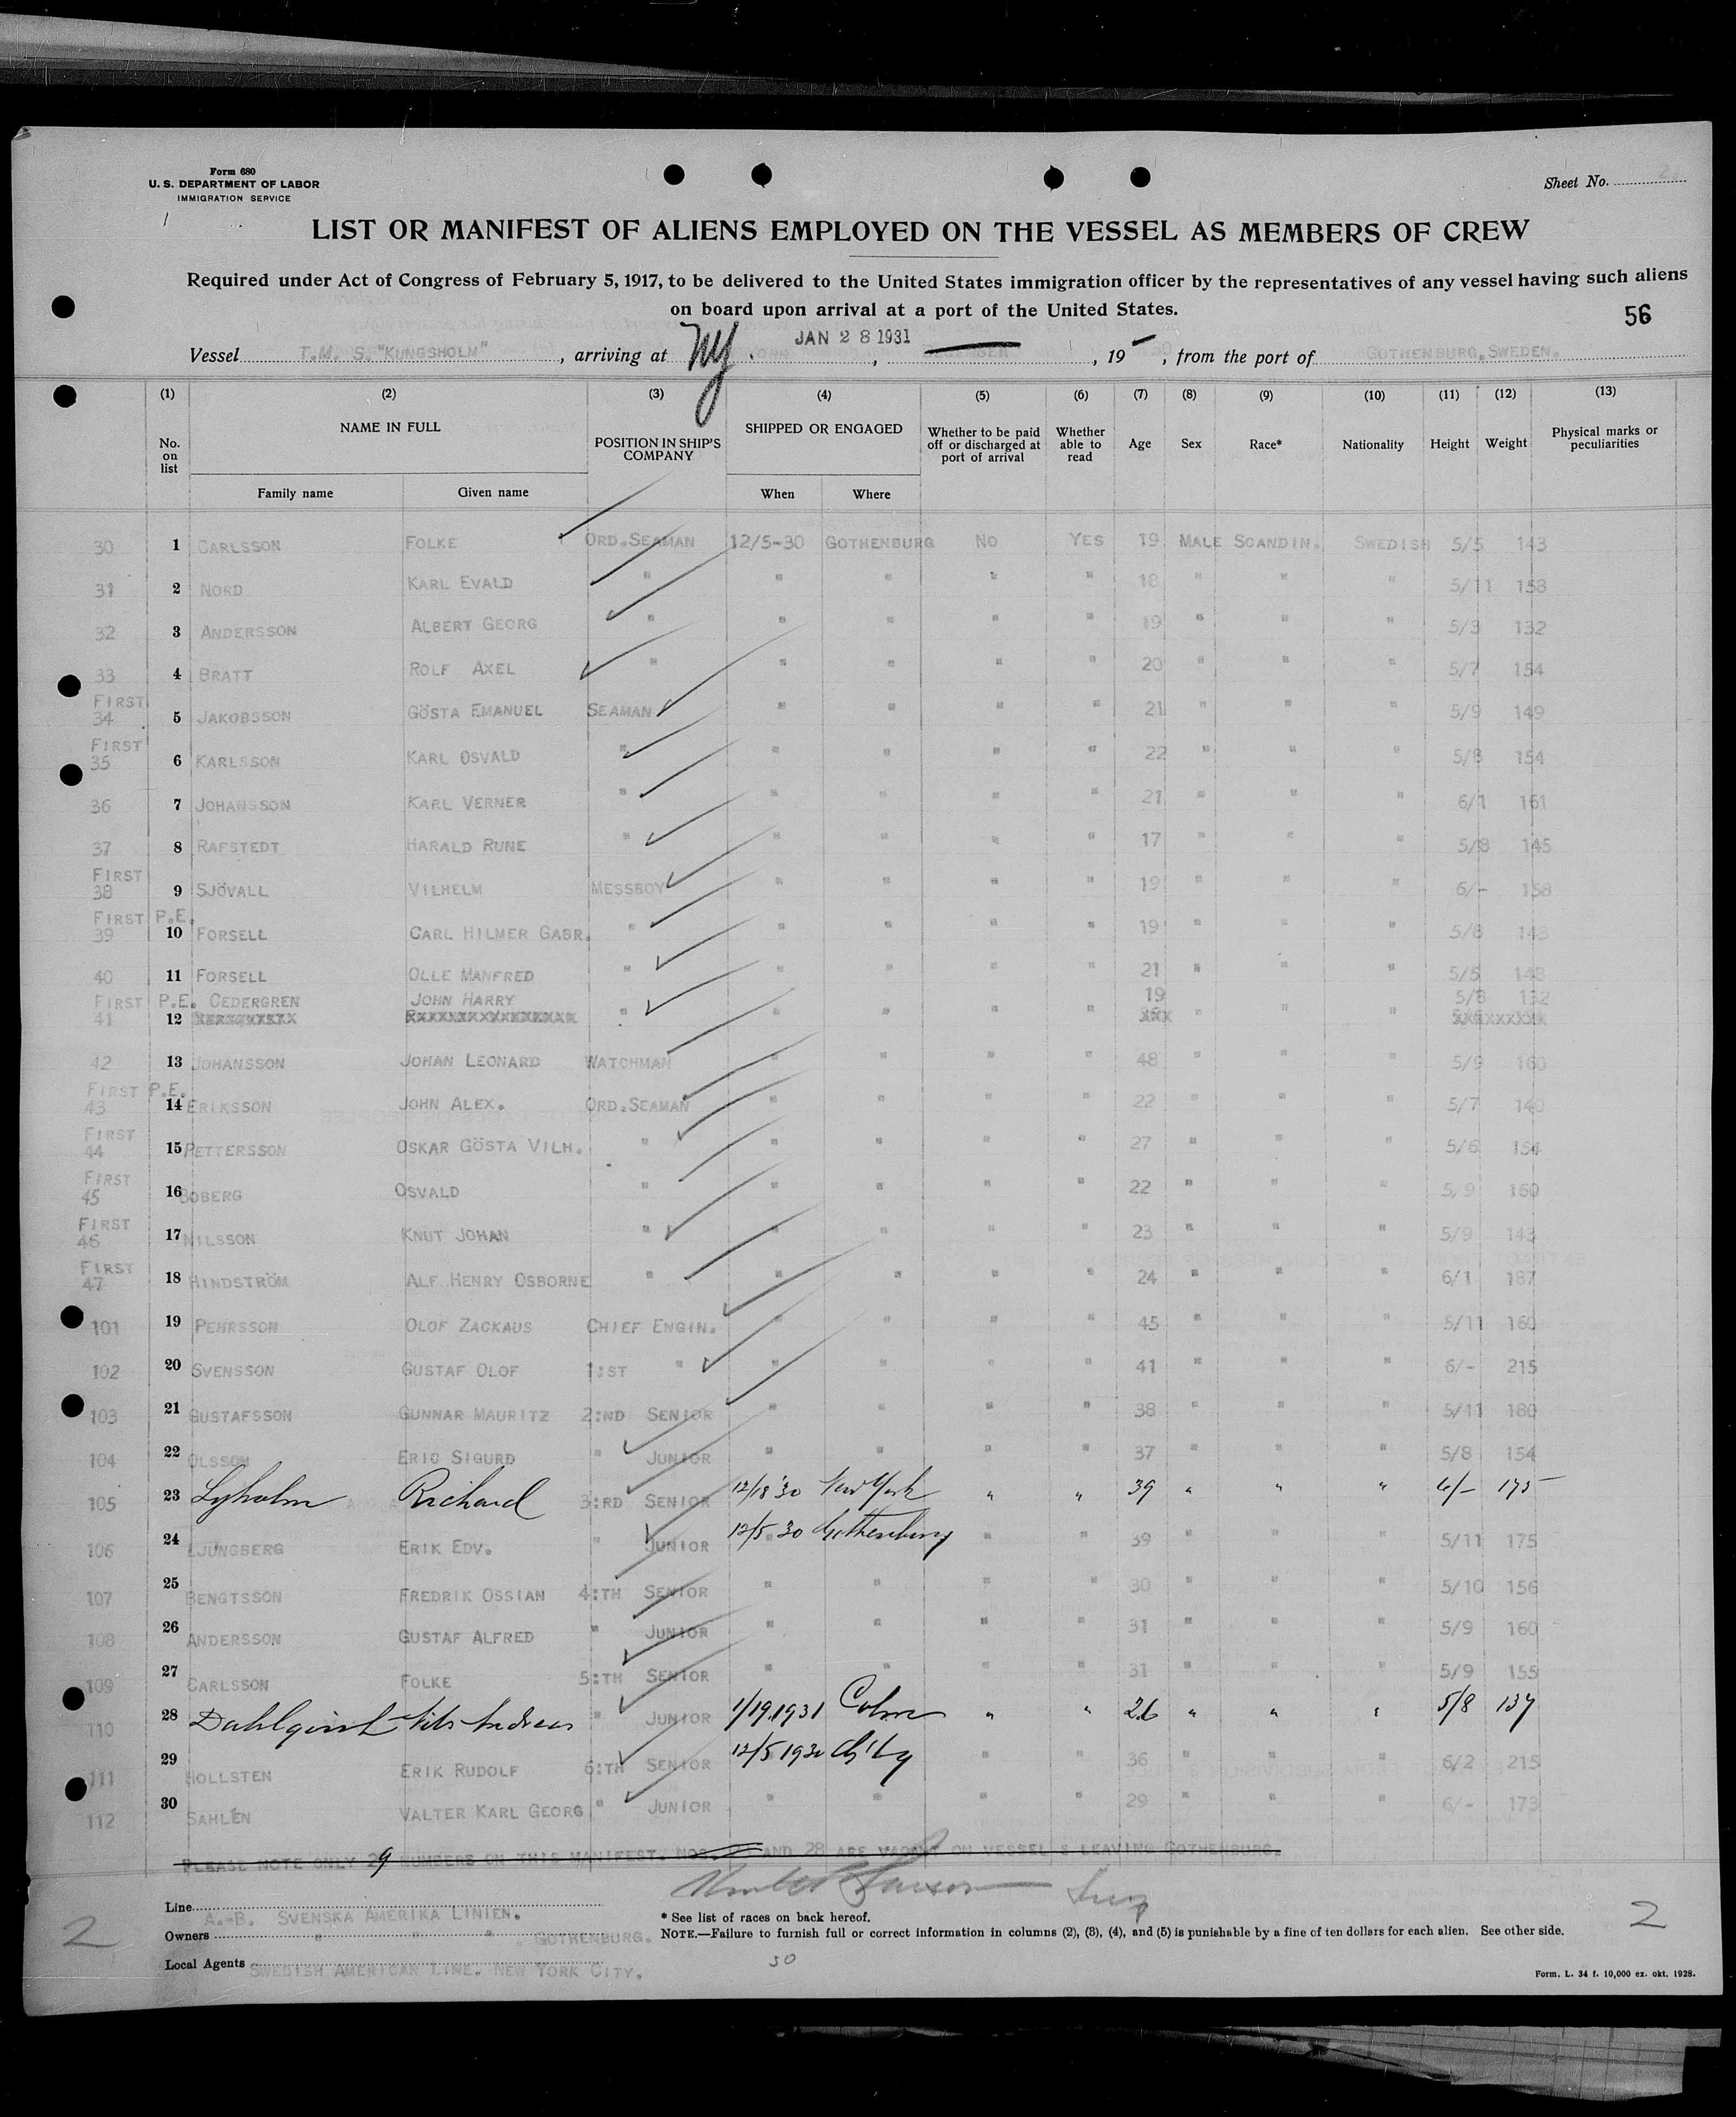 Form 680
U. S. DEPARTMENT OF LABOR
IMMIGRATION SERVICE
Sheet No. 2
LIST OR MANIFEST OF ALIENS EMPLOYED ON THE VESSEL AS MEMBERS OF CREW
Required under Act of Congress of February 5, 1917, to be delivered to the United States immigration officer by the representatives of any vessel having such aliens
on board upon arrival at a port of the United States.
56
Vessel T.M. S. "KUNGSHOLM", arriving at NY. JAN 28 1931, 19, from the port of GOTHENBURG, SWEDEN.
(1) (2) (3) (4) (5) (6) (7) (8) (9) (10) (11) (12) (13)
No. on list NAME IN FULL POSITION IN SHIP'S COMPANY SHIPPED OR ENGAGED Whether to be paid off or discharged at port of arrival Whether able to read Age Sex Race* Nationality Height Weight Physical marks or peculiarities
Family name Given name When Where
30 1 CARLSSON FOLKE ORD.SEAMAN 12/5-30 GOTHENBURG NO YES 19 MALE SCANDIN. SWEDISH 5/5 143
31 2 NORD KARL EVALD " " " " " 18 " " " 5/11 158
32 3 ANDERSSON ALBERT GEORG " " " " " 19 " " " 5/3 132
33 4 BRATT ROLF AXEL " " " " " 20 " " " 5/7 154
FIRST
34 5 JAKOBSSON GÖSTA EMANUEL SEAMAN " " " " 21 " " " 5/9 149
FIRST
35 6 KARLSSON KARL OSVALD " " " " " 22 " " " 5/8 154
36 7 JOHANSSON KARL VERNER " " " " " 21 " " " 6/1 161
37 8 RAFSTEDT HARALD RUNE " " " " " 17 " " " 5/8 145
FIRST
38 9 SJÖVALL VILHELM MESSBOY " " " " 19 " " " 6/- 158
FIRST P.E.
39 10 FORSELL CARL HILMER GABR. " " " " " 19 " " " 5/8 143
40 11 FORSELL OLLE MANFRED " " " " " 21 " " " 5/5 143
FIRST P.E. CEDERGREN JOHN HARRY 19 5/8 132
41 12 " " " " " " " "
42 13 JOHANSSON JOHAN LEONARD WATCHMAN " " " " 48 " " " 5/9 160
FIRST P.E.
43 14 ERIKSSON JOHN ALEX. ORD.SEAMAN " " " " 22 " " " 5/7 140
FIRST
44 15 PETTERSSON OSKAR GÖSTA VILH. " " " " " 27 " " " 5/6 154
FIRST
45 16 BOBERG OSVALD " " " " " 22 " " " 5/9 160
FIRST
46 17 NILSSON KNUT JOHAN " " " " " 23 " " " 5/9 143
FIRST
47 18 HINDSTRÖM ALF HENRY OSBORNE " " " " " 24 " " " 6/1 187
101 19 PEHRSSON OLOF ZACKAUS CHIEF ENGIN. " " " " 45 " " " 5/11 160
102 20 SVENSSON GUSTAF OLOF 1:ST " " " " " 41 " " " 6/- 215
103 21 GUSTAFSSON GUNNAR MAURITZ 2:ND SENIOR " " " " 38 " " " 5/11 180
104 22 OLSSON ERIC SIGURD " JUNIOR " " " " 37 " " " 5/8 154
105 23 Lyholm Richard 3:RD SENIOR 12/18'30 New York " " 39 " " " 6/- 175
106 24 LJUNGBERG ERIK EDV. " JUNIOR 12/5 30 Gothenburg " " 39 " " " 5/11 175
107 25 BENGTSSON FREDRIK OSSIAN 4:TH SENIOR " " " " 30 " " " 5/10 156
108 26 ANDERSSON GUSTAF ALFRED " JUNIOR " " " " 31 " " " 5/9 160
109 27 CARLSSON FOLKE 5:TH SENIOR " " " " 31 " " " 5/9 155
110 28 Dahlqvist Nils Andreas " JUNIOR 1/19.1931 " " 26 " " " 5/8 137
111 29 HOLLSTEN ERIK RUDOLF 6:TH SENIOR 12/5 1930 G'bg " " 36 " " " 6/2 215
112 30 SAHLÉN VALTER KARL GEORG " JUNIOR " " " " 29 " " " 6/- 173
PLEASE NOTE ONLY 29 NUMBERS ON THIS MANIFEST. NOS. AND 28 ARE VACANT ON VESSEL S LEAVING GOTHENBURG.
2
Line A.-B. SVENSKA AMERIKA LINIEN.
* See list of races on back hereof.
2
Owners " " " . GOTHENBURG.
NOTE.—Failure to furnish full or correct information in columns (2), (3), (4), and (5) is punishable by a fine of ten dollars for each alien. See other side.
Local Agents SWEDISH AMERICAN LINE. NEW YORK CITY.
30
Form. L. 34 f. 10,000 ex. okt. 1928.